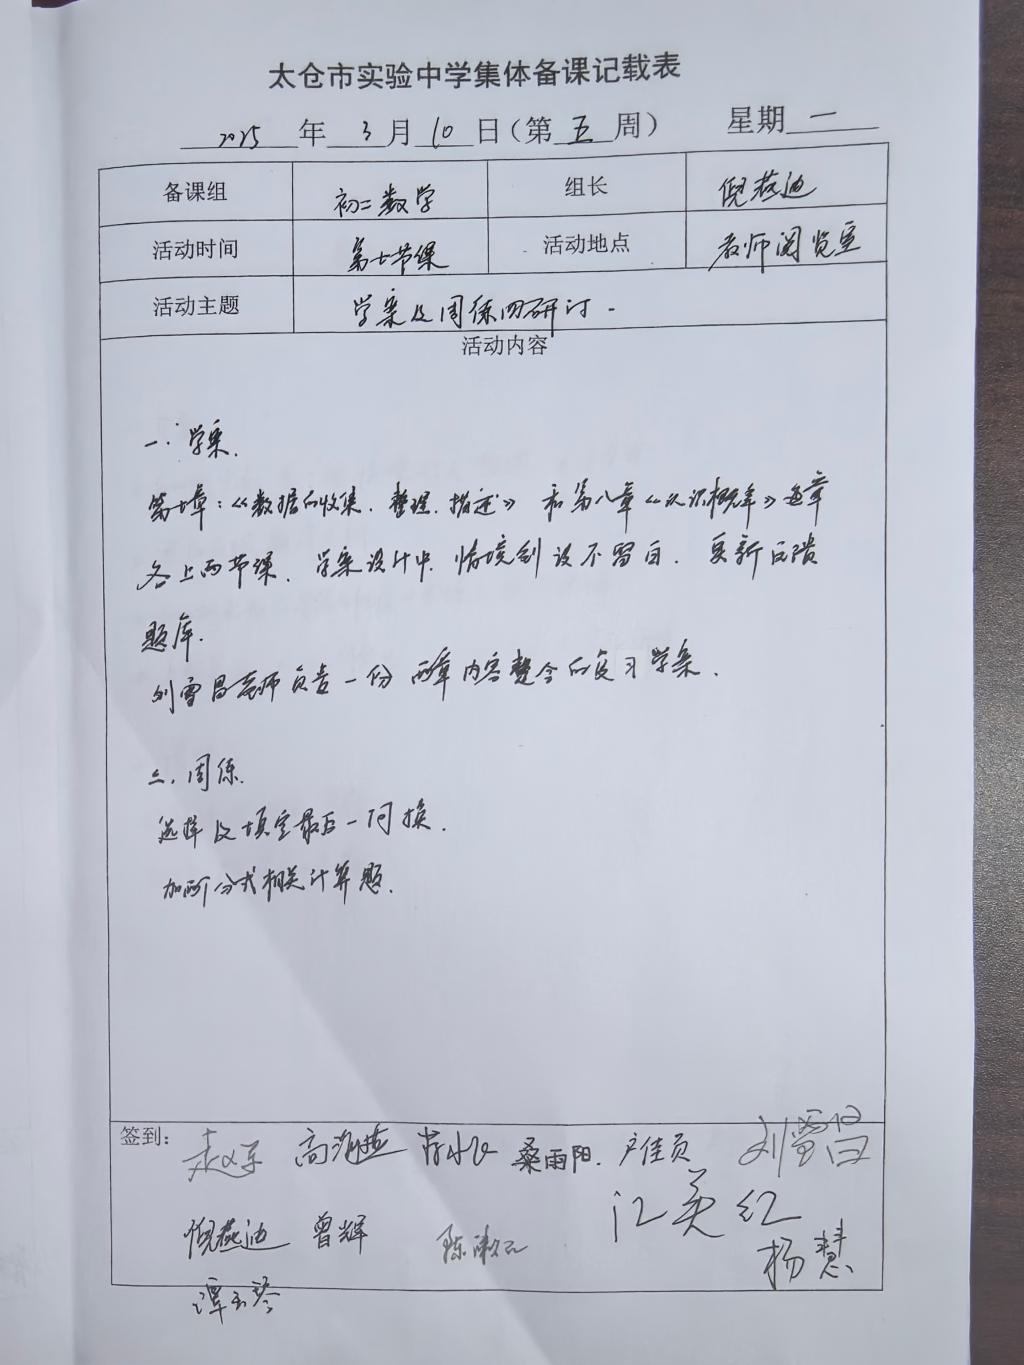 太仓市实验中学集体备课记载表
2025 年 3 月 10 日（第 五 周） 星期 一
备课组 初二数学 组长 倪燕迪
活动时间 第七节课 活动地点 教师阅览室
活动主题 学案及周练四研讨.
活动内容
一. 学案.
第七章：《数据的收集、整理、描述》和第八章《认识概率》每章
各上两节课、学案设计中、情境创设不留白、更新反馈
题库.
刘雪昌老师负责一份 两章内容整合的复习学案.
二. 周练.
选择及填空最后一问换.
加两分式相关计算题.
签到：
高 桑雨阳. 刘雪昌
倪燕迪 曾辉 江美红
杨慧
谭玉琴